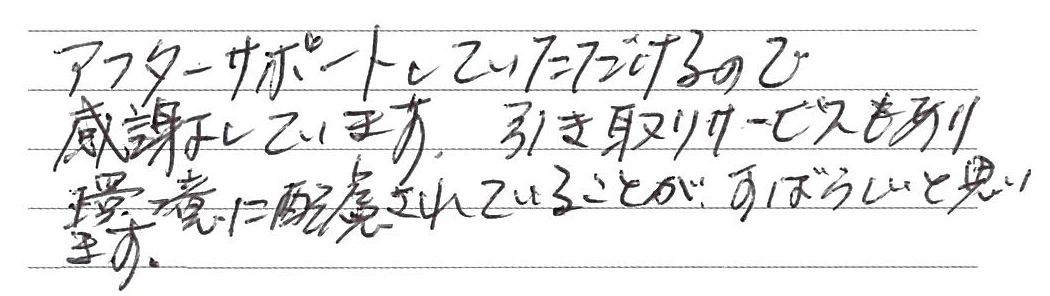 アフターサポートしていただけるので
感謝しています。引き取りサービスもあり
環境に配慮されていることが、すばらしいと思い
ます。